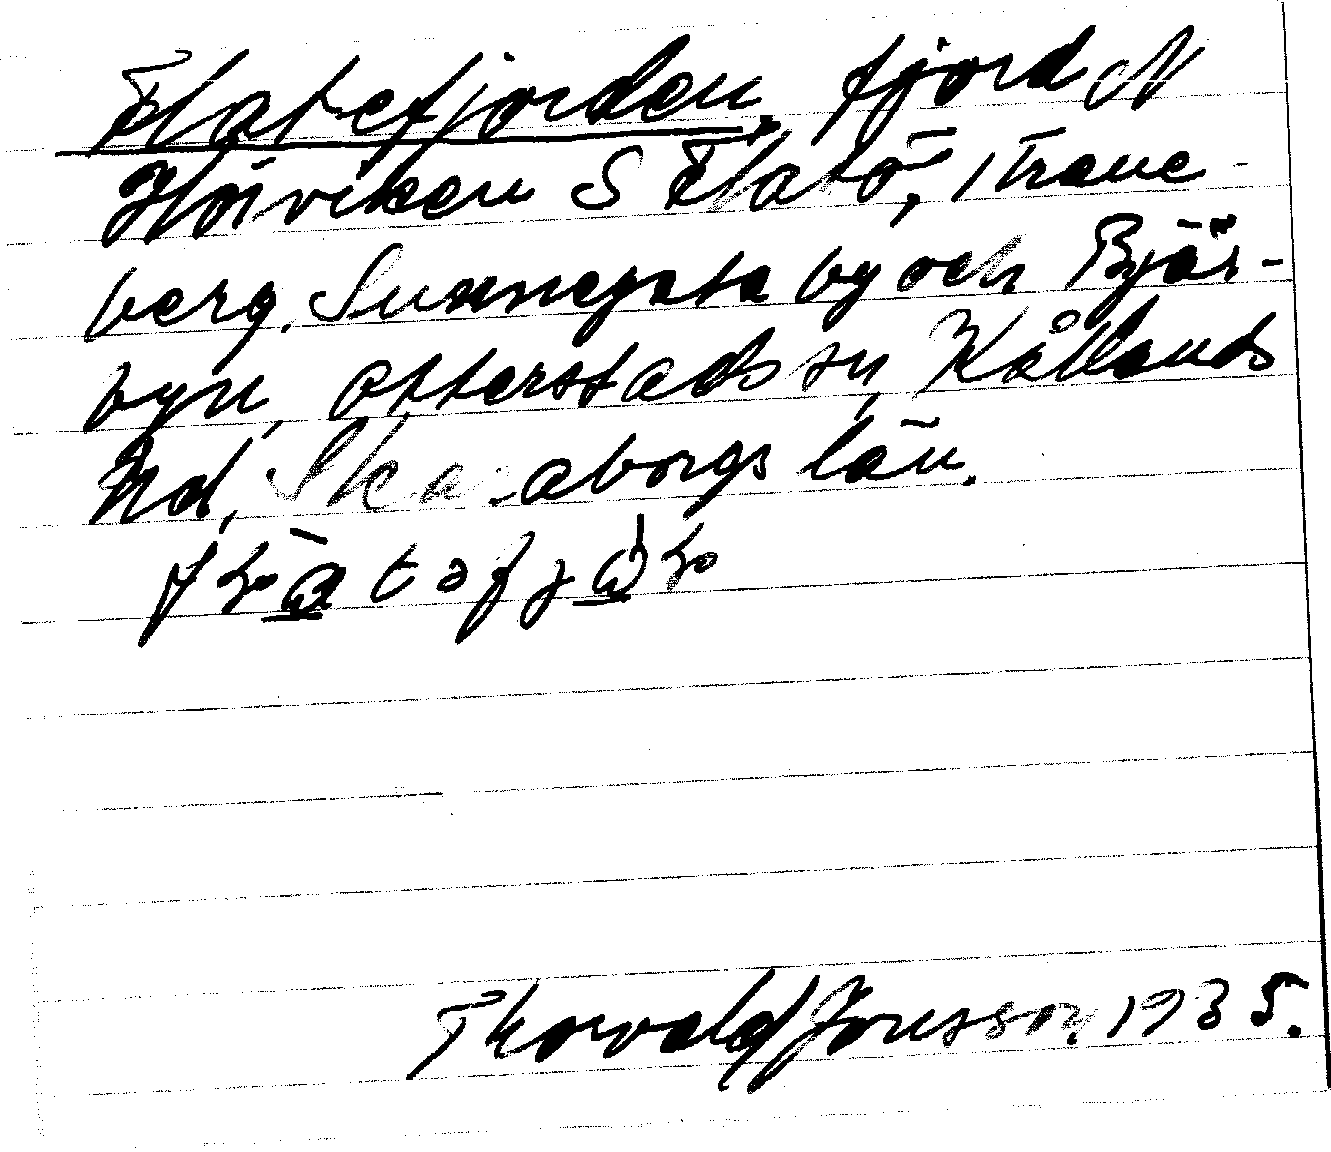 Flatefjorden, fjord N
Hörviken S Flatö, Trane-
berg. Sunnegata by och Bjär-
byn, Otterstads sn, Kållands
hd, Skaraborgs län.
Thorvald Jonsson, 1935.